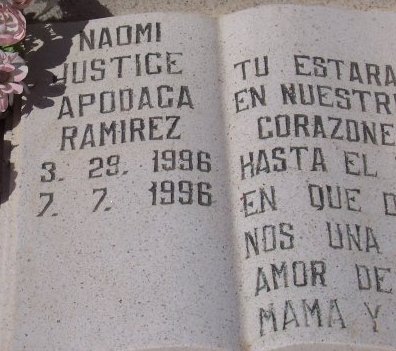 NAOMI
JUSTICE
APODACA
RAMIREZ
3. 29. 1996
7. 7. 1996
TU ESTARA
EN NUESTR
CORAZONE
HASTA EL
EN QUE
NOS UNA
AMOR DE
MAMA Y